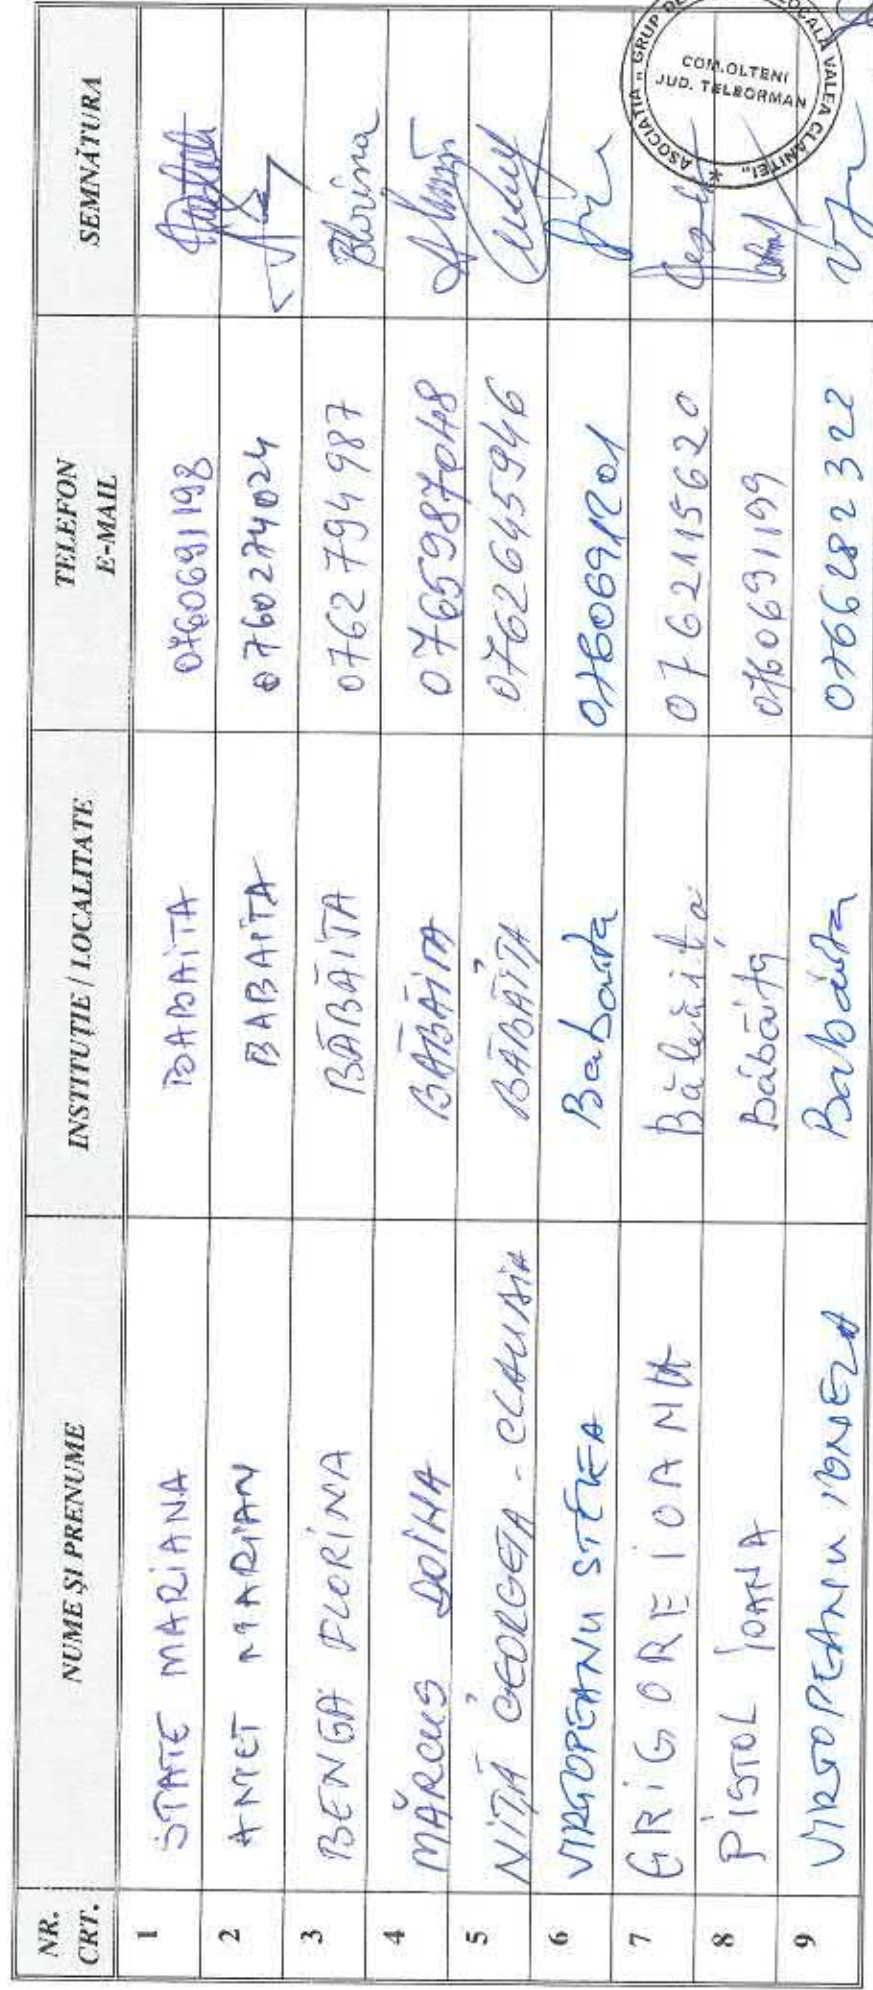 NR. CRT. NUME ȘI PRENUME INSTITUȚIE / LOCALITATE TELEFON E-MAIL SEMNĂTURA
1 STATE MARIANA BABAITA 0760691198
2 AMET MARIAN BABAITA 0760274024
3 BENGA FLORINA BĂBĂITA 0762794987
4 MĂRCUS DOINA BĂBĂITA 0765987048
5 NIȚĂ GEORGETA - CLAUDIA BĂBĂIȚA 0762645946
6 VIRTOPEANU STELEA Babaita 0760691201
7 GRIGORE IOANA 0762115620
8 PISTOL IOANA Băbăița 0760691199
9 VIRTOPEANU IONELA Babăita 0766282322
COM. OLTENI
JUD. TELEORMAN
ASOCIAȚIA „ GRUP LOCALĂ VALEA CLANIȚEI”